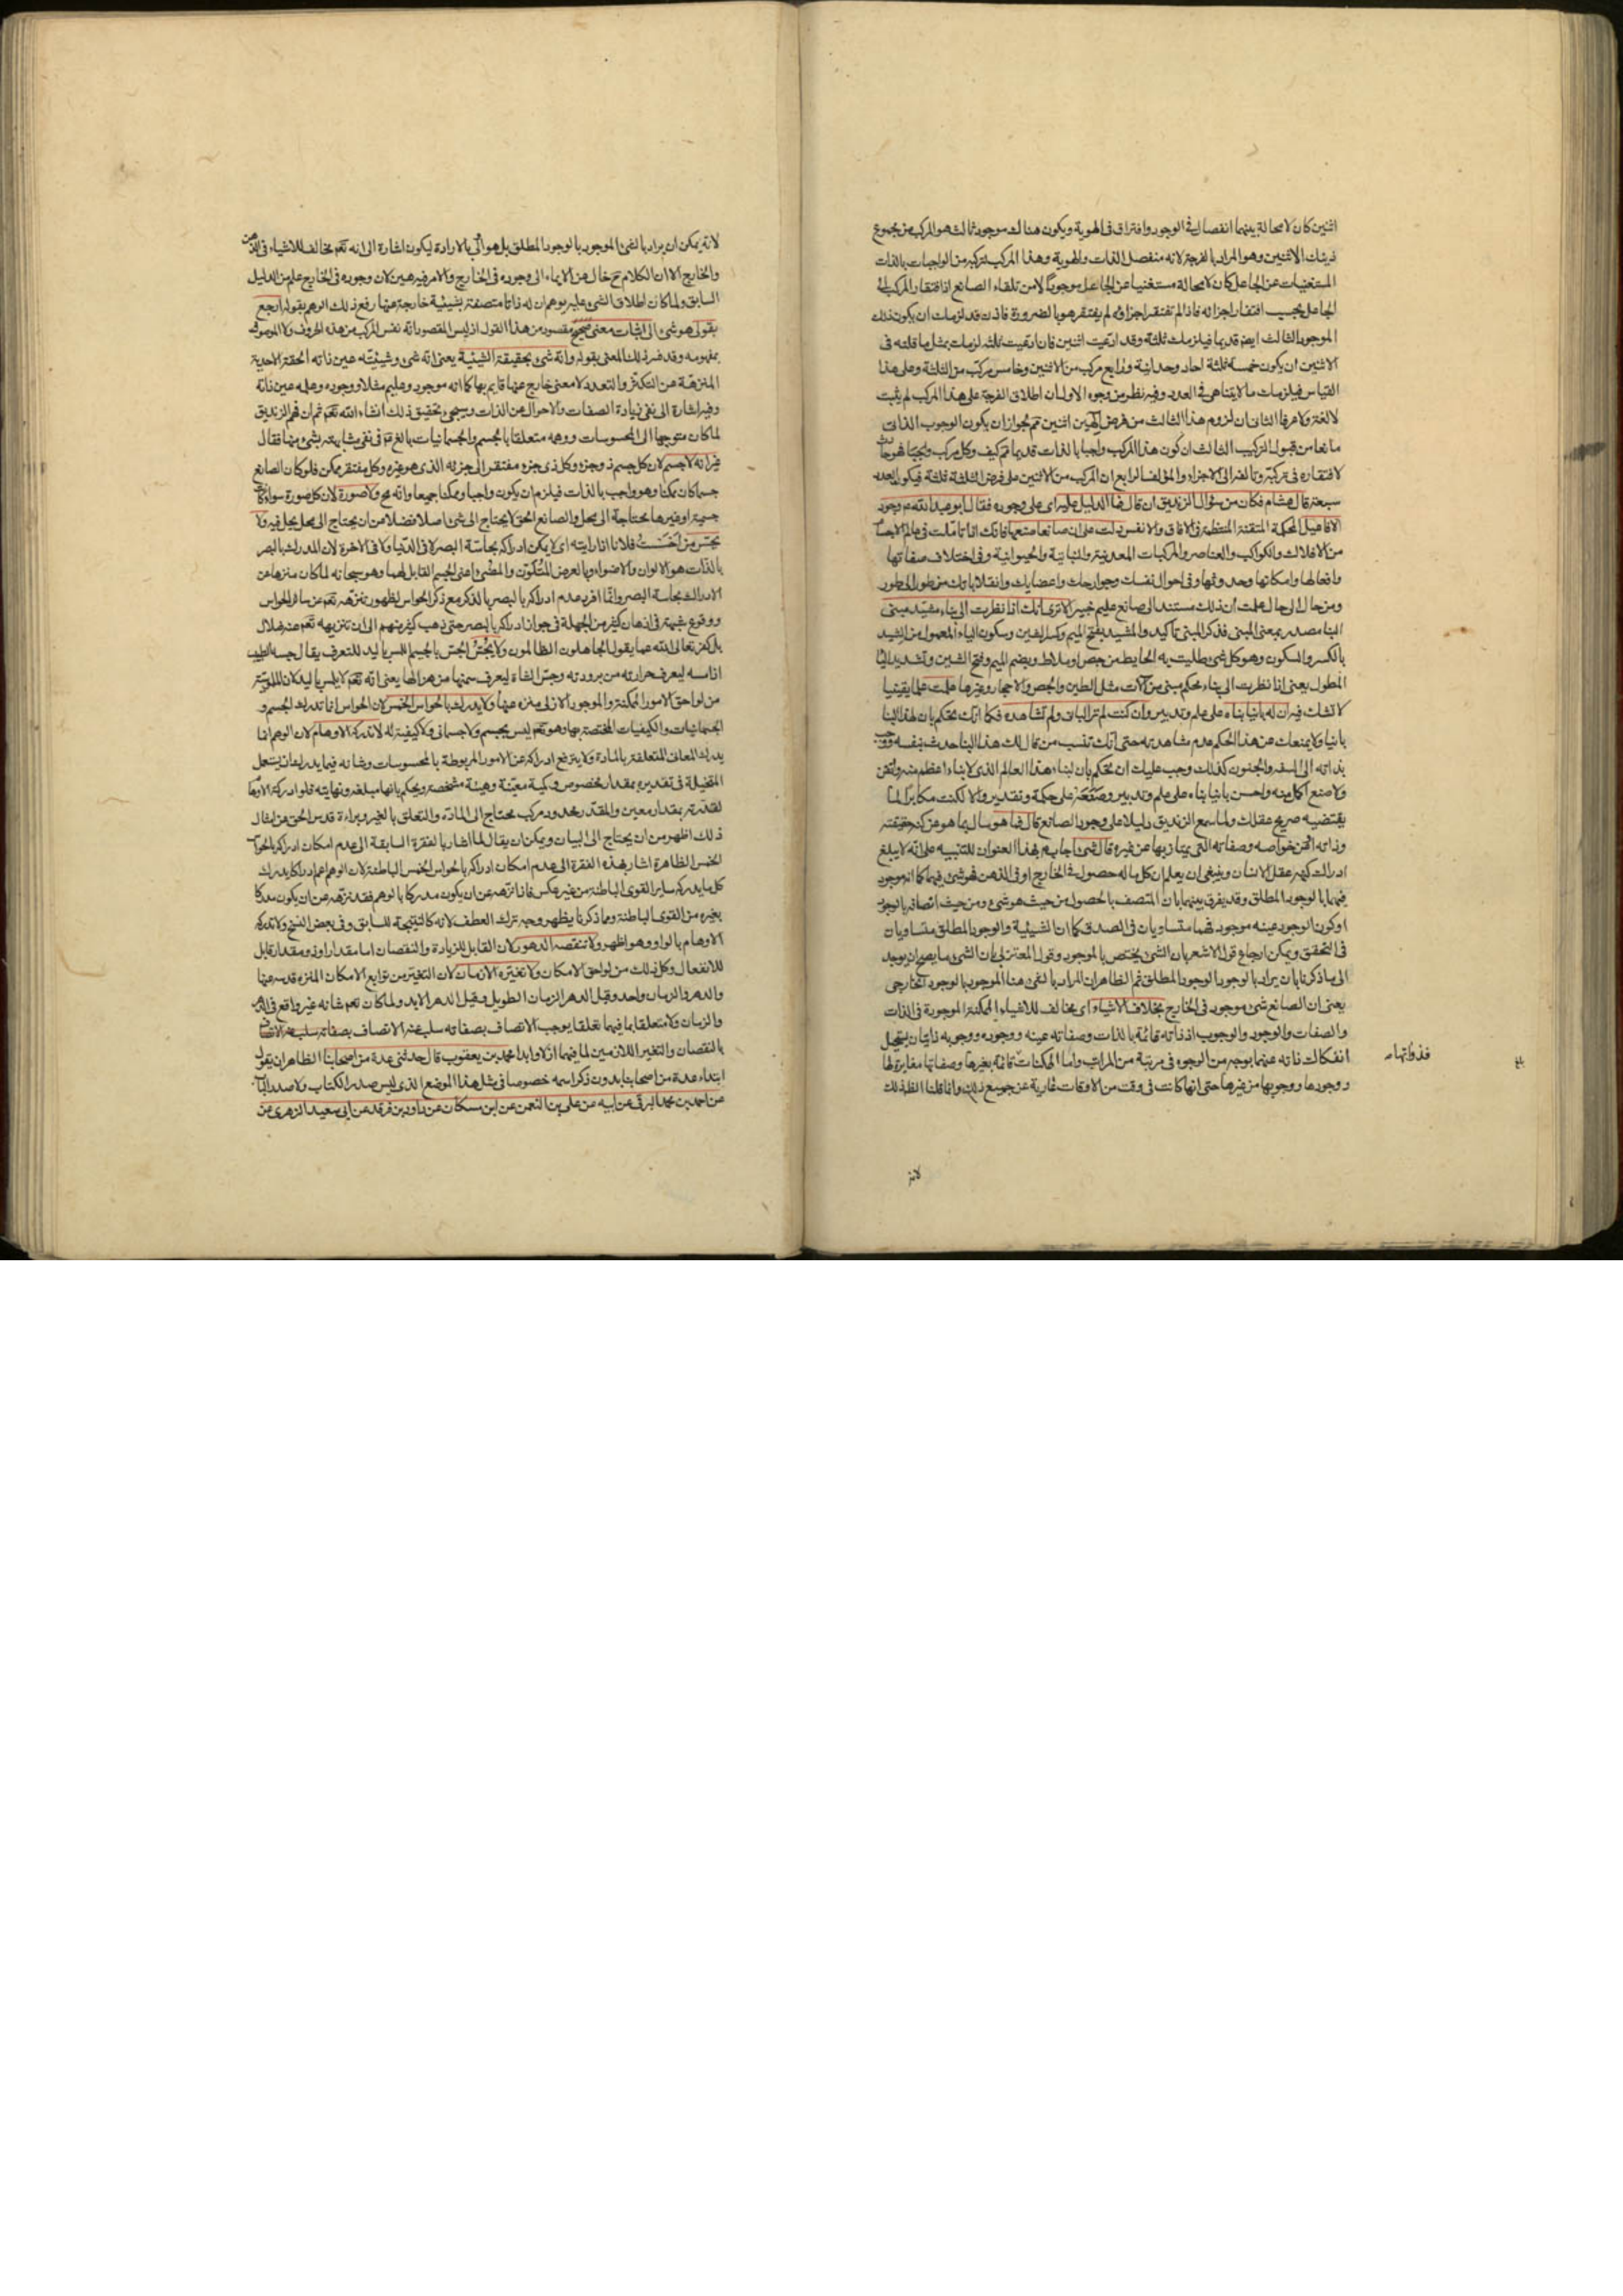 اثنين كان لا محالة بينهما انفصال في الوجود وافتراق في الهوية ويكون هناك موجود ثالث هو المركب من مجموع
ذينك الاثنين وهو المراد بالفرجة لانه منفصل الذات والهوية وهذا المركب لتركبه من الواجبات بالذات
المستغنيات عن الجاعل كان لا محالة مستغنيا عن الجاعل موجودا لا من تلقاء الصانع اذ افتقار المركب الى
الجاعل بحسب افتقار اجزائه فاذا لم تفتقر اجزاؤه لم يفتقر هو بالضرورة فاذن قد لزمك ان يكون ذلك
الموجود الثالث ايضا قديما فيلزمك ثلثة وقد ادعيت اثنين فان ادعيت ثلثة لزمك مثل ما قلته في
الاثنين ان يكون خمسة ثلثة احاد وحدانية ورابع مركب من الاثنين وخامس مركب من الثلثة وعلى هذا
القياس فيلزمك ما لا يتناهى في العدد وفيه نظر من وجوه الاول ان اطلاق الفرجة على هذا المركب لم يثبت
لا لغة ولا عرفا الثاني ان لزوم هذا الثالث من فرض الهين اثنين تم لجواز ان يكون الوجوب الذاتي
مانعا من قبول التركيب الثالث ان كون هذا المركب واجبا بالذات قديما تم كيف وكل مركب
لافتقاره في تركبه وتألفه الى الاجزاء والمؤلف الرابع ان المركب من الاثنين على فرض الثلثة ثلثة فيكون العدد
سبعة قال هشام فكان من سؤال الزنديق ان قال فما الدليل عليه اى على وجوده فقال ابو عبد الله ع وجود
الافاعيل المحكمة المتقنة المنتظمة في الافاق والانفس دلت على ان صانعا صنعها فانك اذا تاملت في عالم الاجسام
من الافلاك والكواكب والعناصر والمركبات المعدنية والنباتية والحيوانية وفي اختلاف صفاتها
وافعالها وامكانها وحدوثها وفي احوال نفسك وجوارحك واعضائك وانقلاباتك من طور الى طور
ومن حال الى حال علمت ان ذلك مستند الى صانع عليم خبير الا ترى انك اذا نظرت الى بناء مشيد مبنى
البنا مصدر بمعنى المبنى فذكر المبنى تأكيد والمشيد بفتح الميم وكسر الشين وسكون الياء المعمول من الشيد
بالكسر والسكون وهو كل شى طليت به الحايط من جص او بلاط وبضم الميم وفتح الشين وتشديد الياء
المطول يعنى اذا نظرت الى بناء محكم مبنى من آلات مثل الطين والجص والاحجار وغيرها علمت علما يقينيا
لا تشك فيه ان له بانيا بناه على علم وتدبير وان كنت لم تر البانى ولم تشاهده فكما انك تحكم بان لهذا البنا
بانيا ولا يمنعك عن هذا الحكم عدم مشاهدته حتى انك تنسب من قال لك هذا البنا حدث بنفسه ووجب
بذاته الى السفه والجنون كذلك وجب عليك ان تحكم بان لبناء هذا العالم الذى لا بناء اعظم منه واتقن
ولا صنع اكمل منه واحسن بانيا بناه على علم وتدبير وصنعه على حكمة وتقدير والا لكنت مكابرا لما
يقتضيه صريح عقلك ولما سمع الزنديق دليلا على وجود الصانع قال فما هو سال بما هو عن كنه حقيقته
وذاته او عن خواصه وصفاته التى يمتاز بها عن غيره قال شئ اجاب ع بهذا العنوان للتنبيه على انه لا يبلغ
ادراك كنهه عقل الانسان وينبغى ان يعلم ان كل ما له حصول في الخارج او في الذهن فهو شئ فيهما كما انه موجود
فيهما بالوجود المطلق وقد يفرق بينهما بان المتصف بالحصول من حيث هو شئ ومن حيث اتصافه بالوجود
او كون الوجود عينه موجود فهما متساويان في الصدق كما ان الشيئية والوجود المطلق متساويان
في التحقق ويمكن ارجاع قول الاشعرى بان الشئ يختص بالموجود وقول المعتزلى بان الشئ ما يصح ان يوجد
الى ما ذكرنا بان يراد بالوجود الوجود المطلق ثم الظاهر ان المراد بالشئ هنا الموجود بالوجود الخارجى
يعنى ان الصانع شئ موجود في الخارج بخلاف الاشياء اى مخالف للاشياء الممكنة الموجودة في الذات
والصفات والوجود والوجوب اذ ذاته قائمة بالذات وصفاته عينه ووجوده ووجوبه ذاتيان يستحيل
انفكاك ذاته عنهما بوجه من الوجوه في مرتبة من المراتب واما الممكنات قائمة بغيرها وصفاتها مغايرة لها
ووجودها ووجوبها من غيرها حتى انها كانت في وقت من الاوقات عارية عن جميع ذلك وانما قلنا الظ ذلك
فذواتها
لانه
لانه يمكن ان يراد بالشئ الموجود بالوجود المطلق بل هو اولى بالارادة ليكون اشارة الى انه تعم مخالف للاشياء في الذهن
والخارج الا ان الكلام ح خال عن الايماء الى وجوده في الخارج والامر فيه هين لان وجوده في الخارج علم من الدليل
السابق ولما كان اطلاق الشئ عليه يوهم ان له ذاتا متصفة بشيئية خارجة عنها رفع ذلك الوهم بقوله ارجع
بقولى هو شئ الى اثبات معنى صحيح مقصود من هذا القول اذ ليس المقصود انه نفس المركب من هذه الحروف ولا الموصوف
بمفهومه وقد فسر ذلك المعنى بقوله وانه شئ بحقيقة الشيئية يعنى انه شئ وشيئيته عين ذاته الحقة الاحدية
المنزهة عن التكثر والتعدد لا معنى خارج عنها قايم بها كما انه موجود وعليم مثلا ووجوده وعلمه عين ذاته
وفيه اشارة الى نفى زيادة الصفات والاحوال عن الذات وسيجئ تحقيق ذلك انشاء الله تعم ثم ان فهم الزنديق
لما كان متوجها الى المحسوسات ووهمه متعلقا بالجسم والجسمانيات بالغ ع في نفى مشابهته بشئ منها فقال
غير انه لا جسم لان كل جسم ذو جزء وكل ذى جزء مفتقر الى جزئه الذى هو غيره وكل مفتقر ممكن فلو كان الصانع
جسما كان ممكنا وهو واجب بالذات فيلزم ان يكون واجبا وممكنا جميعا وانه مح ولا صورة لان كل صورة سواء كانت
جسمية او غيرها محتاجة الى محل والصانع الحق لا يحتاج الى شئ اصلا فضلا من ان يحتاج الى محل يحل فيه ولا
يحس من احسست فلانا اذا رايته اى لا يمكن ادراكه بحاسة البصر لا في الدنيا ولا في الاخرة لان المدرك بالبصر
بالذات هو الالوان والاضواء وبالعرض المتكون والمضئ اعنى الجسم القابل لهما وهو سبحانه لما كان منزها عن
الادراك بحاسة البصر وانما افرد عدم ادراكه بالبصر بالذكر مع ذكر الحواس لظهور تنزهه تعم عن سائر الحواس
ووقوع شبهة في اذهان كثير من الجهلة في جواز ادراكه بالبصر حتى ذهب كثير منهم الى ان تنزيهه تعم عنه ضلال
بل كفر تعالى الله عما يقول الجاهلون الظالمون ولا يجس الجس بالجيم اللمس باليد للتعرف يقال جسه الطبيب
اذا مسه ليعرف حرارته من برودته وجس الشاة ليعرف سمنها من هزالها يعنى انه تعم لا يلمس باليد لان الملموسية
من لواحق الامور الممكنة والموجود الازلى منزه عنها ولا يدرك بالحواس الخمس لان الحواس انما تدرك الجسم و
الجسمانيات والكيفيات المختصة بها وهو تعم ليس بجسم ولا جسمانى ولا كيفية له لا تدركه الاوهام لان الوهم انما
يدرك المعانى المتعلقة بالمادة ولا يترفع ادراكه عن الامور المربوطة بالمحسوسات وشانه فيما يدركه ان يستعمل
المتخيلة في تقديره بمقدار مخصوص وكمية معينة وهيئة مشخصة ويحكم بانها مبلغه ونهايته فلو ادركته الاوهام
لقدرته بمقدار معين والمقدر محدود مركب محتاج الى المادة والتعلق بالغير وبراءة قدس الحق عن امثال
ذلك اظهر من ان يحتاج الى البيان ويمكن ان يقال لما اشار بالفقرة السابقة الى عدم امكان ادراكه بالحواس
الخمس الظاهرة اشار بهذه الفقرة الى عدم امكان ادراكه بالحواس الخمس الباطنة لان الوهم اعم ادراكا يدرك
كل ما يدركه ساير القوى الباطنة من غير عكس فاذا نزهه عن ان يكون مدركا بالوهم فقد نزهه عن ان يكون مدركا
بغيره من القوى الباطنة ومما ذكرنا يظهر وجه ترك العطف لانه كالنتيجة للسابق وفي بعض النسخ ولا تدركه
الاوهام بالواو وهو اظهر ولا تنقصه الدهور لان القابل للزيادة والنقصان اما مقدار او ذو مقدار قابل
للانفعال وكل ذلك من لواحق الامكان ولا تغيره الازمان لان التغير من توابع الامكان المنزه قدسه عنها
والدهر والزمان واحد وقيل الدهر الزمان الطويل وقيل الدهر الابد ولما كان تعم شانه غير واقع في الدهر
والزمان ولا متعلقا بما فيهما تعلقا يوجب الاتصاف بصفاته سلب عنه الاتصاف
بالنقصان والتغير اللازمين لما فيهما ازلا وابدا محمد بن يعقوب قال حدثنى عدة من اصحابنا الظاهر ان يقول
ابتداء عدة من اصحابنا بدون ذكر اسمه خصوصا في مثل هذا الموضع الذى ليس صدر الكتاب ولا صدر الباب
عن احمد بن محمد البرقى عن ابيه عن على بن النعمن عن ابن مسكان عن داود بن فرقد عن ابى سعيد الزهرى عن